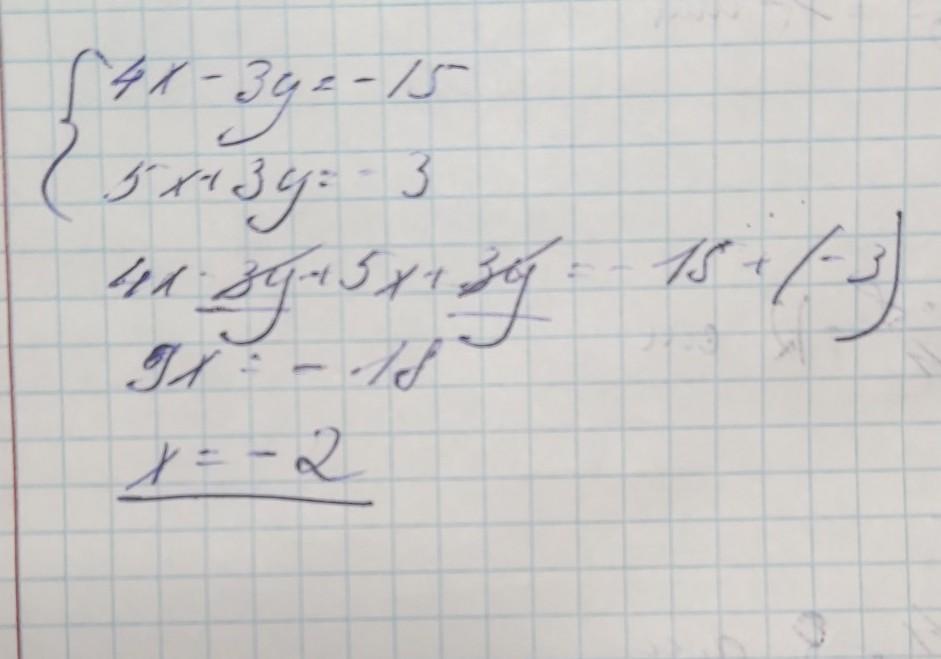 4x - 3y = -15
5x + 3y = - 3
4x - 3y + 5x + 3y = - 15 + (-3)
9x = - 18
x = - 2